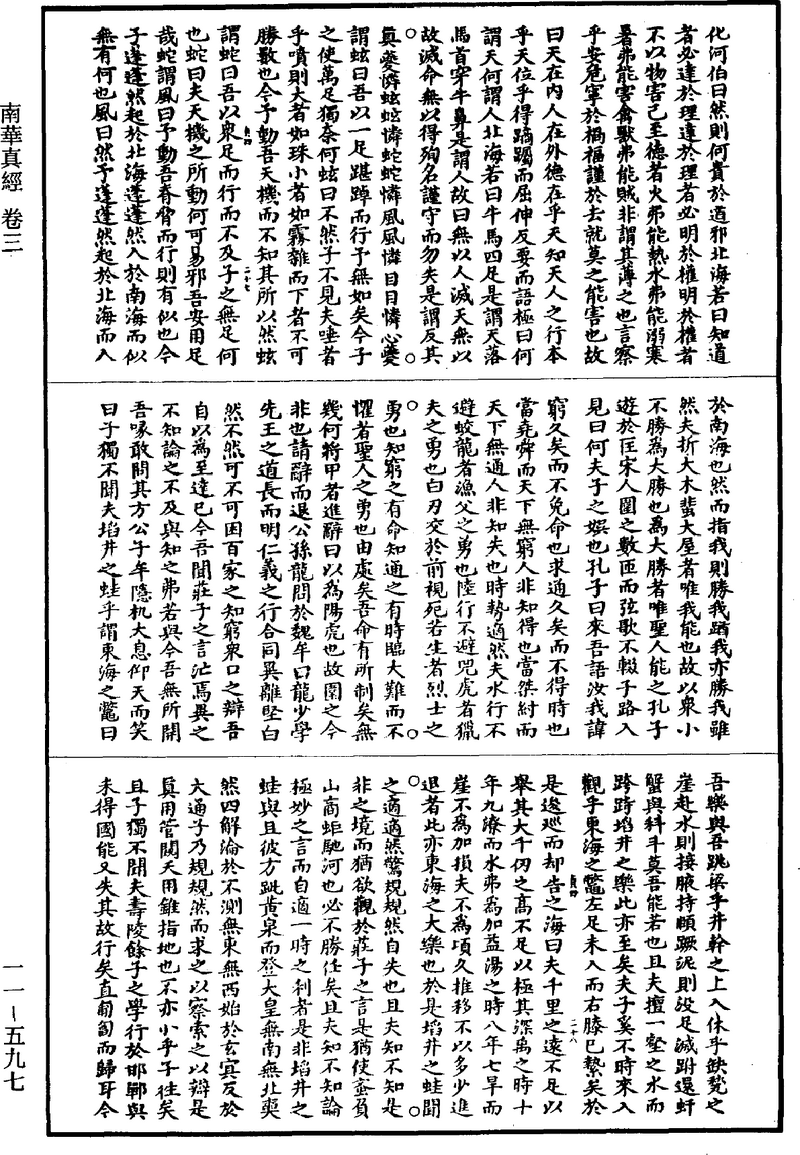 南華真經 卷三
化河伯曰然則何貴於道邪北海若曰知道
者必達於理達於理者必明於權明於權者
不以物害己至德者火弗能熱水弗能溺寒
暑弗能害禽獸弗能賊非謂其薄之也言察
乎安危寧於禍福謹於去就莫之能害也故
曰天在內人在外德在乎天知天人之行本
乎天位乎得蹢躅而屈伸反要而語極曰何
謂天何謂人北海若曰牛馬四足是謂天落
馬首穿牛鼻是謂人故曰無以人滅天無以
故滅命無以得殉名謹守而勿失是謂反其
真夔憐蚿蚿憐蛇蛇憐風風憐目目憐心夔
謂蚿曰吾以一足踸踔而行予無如矣今子
之使萬足獨奈何蚿曰不然子不見夫唾者
乎噴則大者如珠小者如霧雜而下者不可
勝數也今予動吾天機而不知其所以然蚿
謂蛇曰吾以衆足而行而不及子之無足何
也蛇曰夫天機之所動何可易邪吾安用足
哉蛇謂風曰予動吾脊脅而行則有似也今
子蓬蓬然起於北海蓬蓬然入於南海而似
無有何也風曰然予蓬蓬然起於北海而入
於南海也然而指我則勝我䠓我亦勝我雖
然夫折大木蜚大屋者唯我能也故以衆小
不勝爲大勝也爲大勝者唯聖人能之孔子
遊於匡宋人圍之數匝而弦歌不輟子路入
見曰何夫子之娛也孔子曰來吾語汝我諱
窮久矣而不免命也求通久矣而不得時也
當堯舜而天下無窮人非知得也當桀紂而
天下無通人非知失也時勢適然夫水行不
避蛟龍者漁父之勇也陸行不避兕虎者獵
夫之勇也白刃交於前視死若生者烈士之
勇也知窮之有命知通之有時臨大難而不
懼者聖人之勇也由處矣吾命有所制矣無
幾何將甲者進辭曰以爲陽虎也故圍之今
非也請辭而退公孫龍問於魏牟曰龍少學
先王之道長而明仁義之行合同異離堅白
然不然可不可困百家之知窮衆口之辯吾
自以爲至達已今吾聞莊子之言汒焉異之
不知論之不及與知之弗若與今吾無所開
吾喙敢問其方公子牟隱机大息仰天而笑
曰子獨不聞夫埳井之蛙乎謂東海之鼈曰
吾樂與吾跳梁乎井幹之上入休乎缺甃之
崖赴水則接腋持頤蹶泥則沒足滅跗還虷
蟹與科斗莫吾能若也且夫擅一壑之水而
跨跱埳井之樂此亦至矣夫子奚不時來入
觀乎東海之鼈左足未入而右膝已縶矣於
是逡巡而却告之海曰夫千里之遠不足以
舉其大千仞之高不足以極其深禹之時十
年九潦而水弗爲加益湯之時八年七旱而
崖不爲加損夫不爲頃久推移不以多少進
退者此亦東海之大樂也於是埳井之蛙聞
之適適然驚規規然自失也且夫知不知是
非之境而猶欲觀於莊子之言是猶使蚉負
山商蚷馳河也必不勝任矣且夫知不知論
極妙之言而自適一時之利者是非埳井之
蛙與且彼方跐黃泉而登大皇無南無北奭
然四解淪於不測無東無西始於玄冥反於
大通子乃規規然而求之以察索之以辯是
直用管闚天用錐指地也不亦小乎子往矣
且子獨不聞夫壽陵餘子之學行於邯鄲與
未得國能又失其故行矣直匍匐而歸耳今
一一－五九七